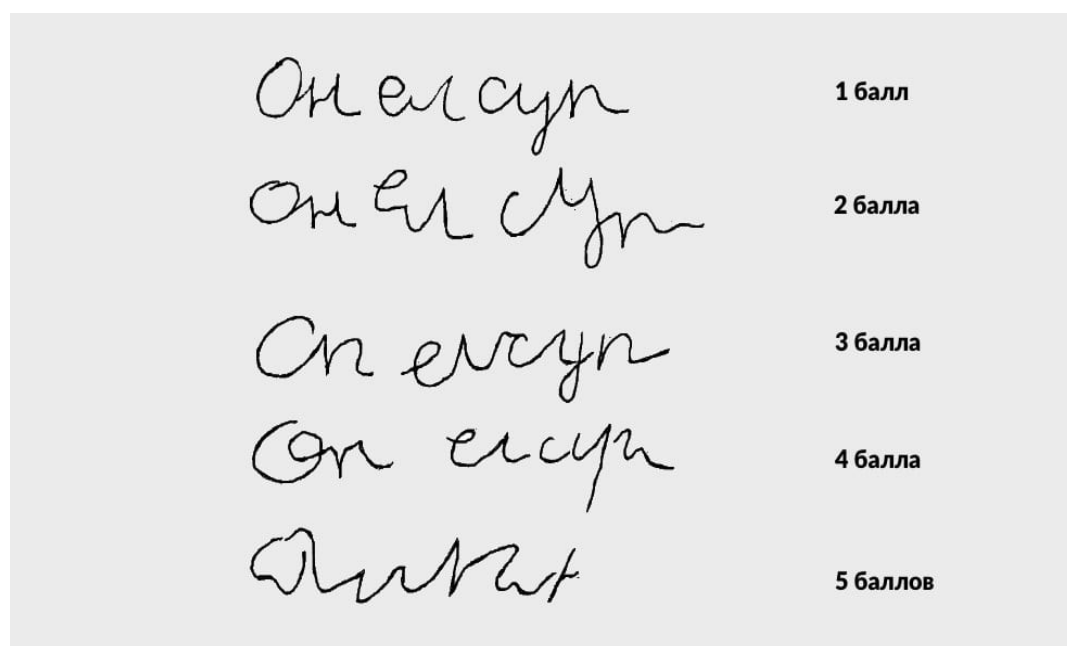 Он ел суп 1 балл
Он Ел суп 2 балла
Оп ел суп 3 балла
Оп ел суп 4 балла
5 баллов